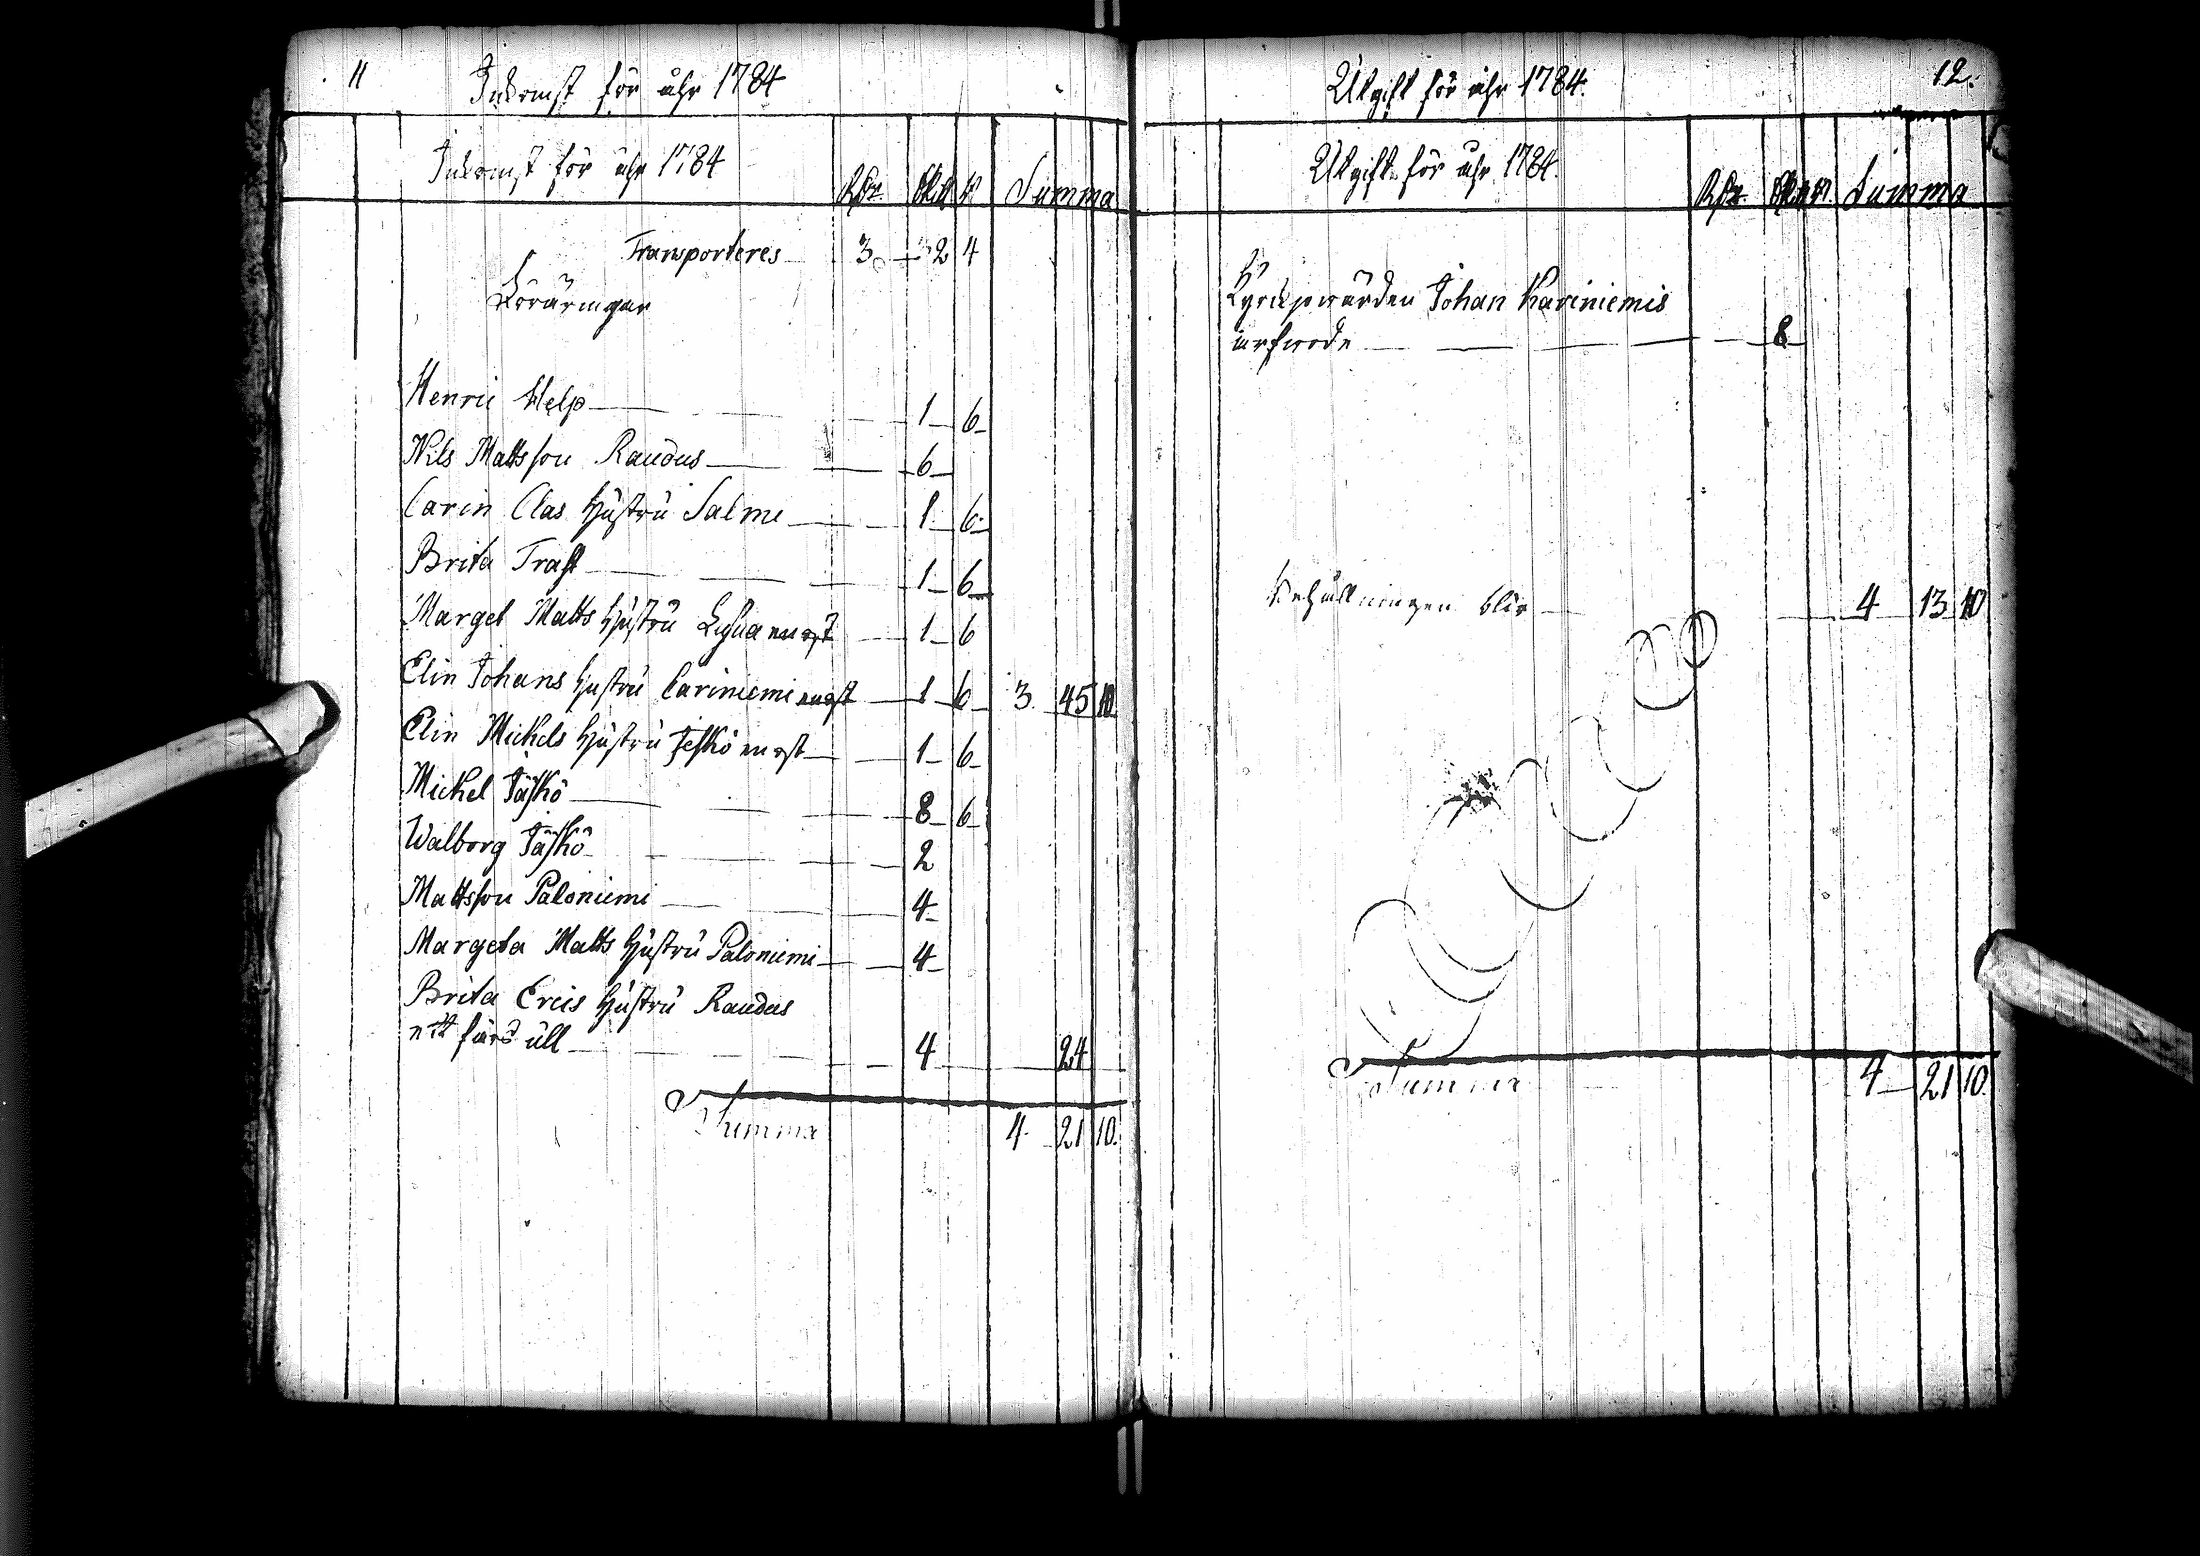 11 Inkomst för åhr 1784
Inkomst för åhr 1784 Rdr. Skill rst Summa
Transporteres 3 32 4
Föräringar
Henric Help 1 6
Nils Mattsson Raudus 6
Carin Clas Hustru Salmi 1 6
Brita Trast 1 6
Marget Matts Hustru 1 6
Elin Johans Hustru Cariniemi 1 6 3 45 10
Elin Mickels Hustru Jeskö 1 6
Mickel Jäskö 8 6
Walborg Jäskö 2
Mattsson Paloniemi 4
Margeta Matts Hustru Paloniemi 4
Brita Erics Hustru Raudus
ett fårs ull 4 24
Summa 4 21 10
Utgift för åhr 1784. 12.
Utgift för åhr 1784. Rdr. Summa
Kyrckowärden Johan Kariniemis
arfwode 8
Behållningen blir 4 13 10
Summa 4 21 10